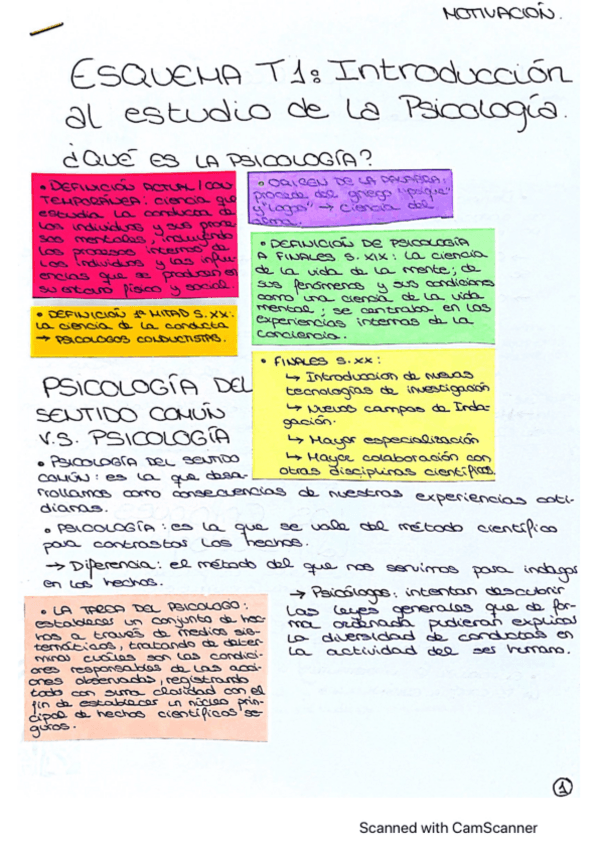 MOTIVACIÓN.
ESQUEMA T1: Introducción
al estudio de la Psicología.
¿QUÉ ES LA PSICOLOGÍA?
• DEFINICIÓN ACTUAL / CON
TEMPORÁNEA: ciencia que
estudia la conducta de
los individuos y sus proce
sos mentales, incluyendo
los procesos internos de
los individuos y las influ
encias que se producen en
su entorno físico y social
• ORIGEN DE LA PALABRA:
procede del griego "psique"
y "logos" → ciencia del
alma.
• DEFINICIÓN DE PSICOLOGÍA
A FINALES S. XIX: La ciencia
de la vida de la mente; de
sus fenómenos y sus condiciones
como una ciencia de la vida
mental; se centraba en las
experiencias internas de la
conciencia.
• DEFINICIÓN 1ª MITAD S. XX:
la ciencia de la conducta
→ PSICOLOGOS CONDUCTISTAS.
• FINALES S. XX:
↳ Introduccion de nuevas
tecnologías de investigación
↳ Nuevos campos de Inda-
gación.
↳ Mayor especialización
↳ Mayor colaboración con
otras disciplinas científicas.
PSICOLOGÍA DEL
SENTIDO COMÚN
V.S. PSICOLOGÍA
• PSICOLOGÍA DEL SENTIDO
COMÚN: es la que desa-
rrollamos como consecuencias de nuestras experiencias coti-
dianas.
• PSICOLOGÍA: es la que se vale del método científico
para contrastar los hechos.
→ Diferencia: el método del que nos servimos para indagar
en los hechos.
→ Psicólogos: intentan descubrir
las leyes generales que de for-
ma ordenada pudieran explicar
la diversidad de conductas en
la actividad del ser humano.
• LA TAREA DEL PSICOLOGO:
establecer un conjunto de hec-
hos a través de medios sis-
temáticos, tratando de deter-
minar cuáles son las condici-
ones responsables de las acci-
ones observadas, registrando
todo con suma claridad con el
fin de establecer un núcleo prin-
cipal de hechos científicos se-
guros.
1
Scanned with CamScanner